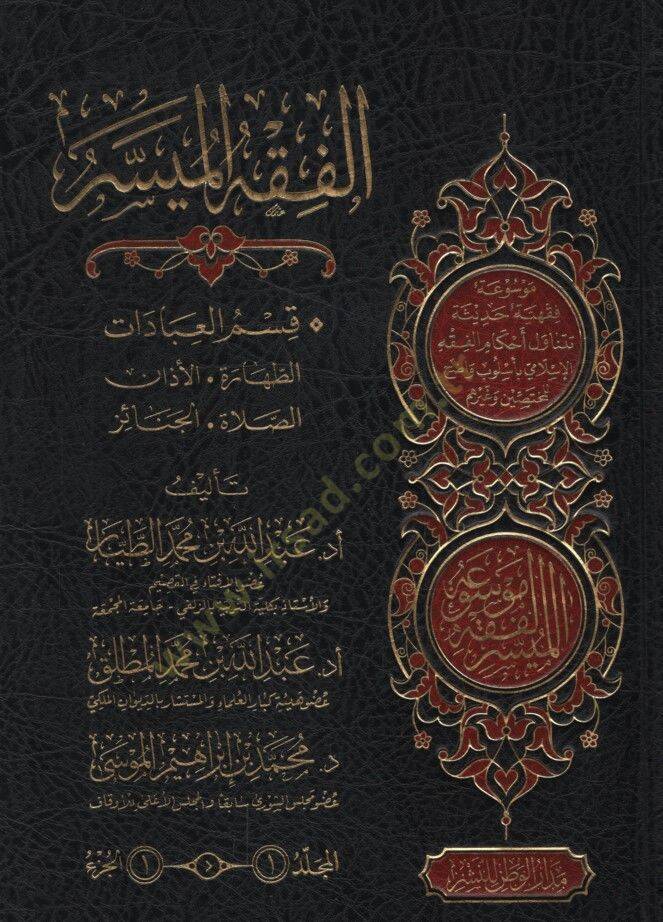 الفِقْهُ المُيَسَّرُ
قِسْمُ العِبَادَات
الطّهَارَة . الأذَان
الصَّلاة . الجَنَائِز
تأليف
أ.د. عَبْدُ اللّٰه بْنُ مُحَمَّد الطَّيَّار
عضو الإفتاء في القصيم
والأستاذ بكلية التربية بالزلفي - جامعة المجمعة
أ.د. عَبْدُ اللّٰه بْنُ مُحَمَّد المُطْلَق
عضو هيئة كبار العلماء والمستشار بالديوان الملكي
د. مُحَمَّد بْنُ إِبْرَاهِيم المُوسَى
عضو مجلس الشورى سابقا والمجلس الأعلى للأوقاف
المجلّد ١ الجزء ١
مَوْسُوعَة
فِقْهِيَّة حَدِيثَة
تتَنَاوَل أَحْكام الفِقْهِ
الإِسْلَامِي بأُسْلُوب وَاضِح
للمُخْتَصِّين وَغَيْرِهِم
مَوْسُوعَة
الفِقْه
المُيَسَّر
مَدَارُ الوَطَن للنَّشْر
www.irsad.com.tr